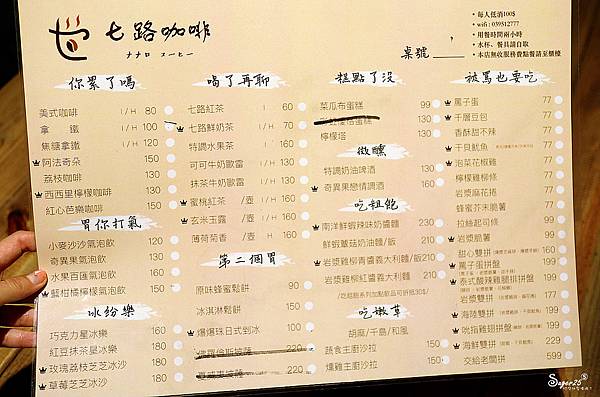 七路咖啡
ナナロ コーヒー
•每人低消100$
•wifi : 039512777
•用餐時間兩小時
•水杯、餐具請自取
•本店無收服務費點餐請至櫃檯
桌號
你累了嗎
美式咖啡 I / H 80
拿 鐵 I / H 100
焦糖拿鐵 I / H 130
阿法奇朵 150
荔枝咖啡 130
西西里檸檬咖啡 130
紅心芭樂咖啡 150
冒你打氣
小麥沙沙氣泡飲 120
奇異果氣泡飲 130
水果百匯氣泡飲 160
藍柑橘檸檬氣泡飲 130
冰紛樂
巧克力星冰樂 160
紅豆抹茶星冰樂 180
玫瑰荔枝芝芝冰沙 180
草莓芝芝冰沙 150
喝了再聊
七路紅茶 I 60
七路鮮奶茶 I / H 70
特調水果茶 I 160
可可牛奶歐蕾 I / H 130
抹茶牛奶歐蕾 I / H 130
蜜桃紅茶 /壺 I / H 160
玄米玉露 /壺 I / H 160
薄荷菊香 /壺 I / H 160
第二個胃
原味蜂蜜鬆餅 90
冰淇淋鬆餅 150
爆爆珠日式剉冰 100
220
220
糕點了沒
菜瓜布蛋糕 99
檸檬塔 130
微醺
特調奶油啤酒 130
奇異果戀情調酒 160
吃粗飽
南洋鮮蝦辣味奶醬麵 230
鮮蝦蕈菇奶油麵/飯 210
岩漿雞柳青醬義大利麵/飯 210
岩漿雞柳紅醬義大利麵 210
吃嫩草
胡麻/千島/和風
蔬食主廚沙拉 150
燻雞主廚沙拉 150
被罵也要吃
罵子蛋 77
千層豆包 77
香酥甜不辣 77
干貝魷魚 77
泡菜花椒雞 77
檸檬雞柳條 77
岩漿麻花捲 77
蜂蜜芥末脆薯 77
拉絲起司條 99
岩漿脆薯 99
甜心雙拼 160
罵子蛋拼盤 199
泰式酸辣雞腿排拼盤 199
岩漿雙拼 199
海陸雙拼 199
吮指雞翅拼盤 199
海鮮雙拼 199
交給老闆拼 599
Sugar25